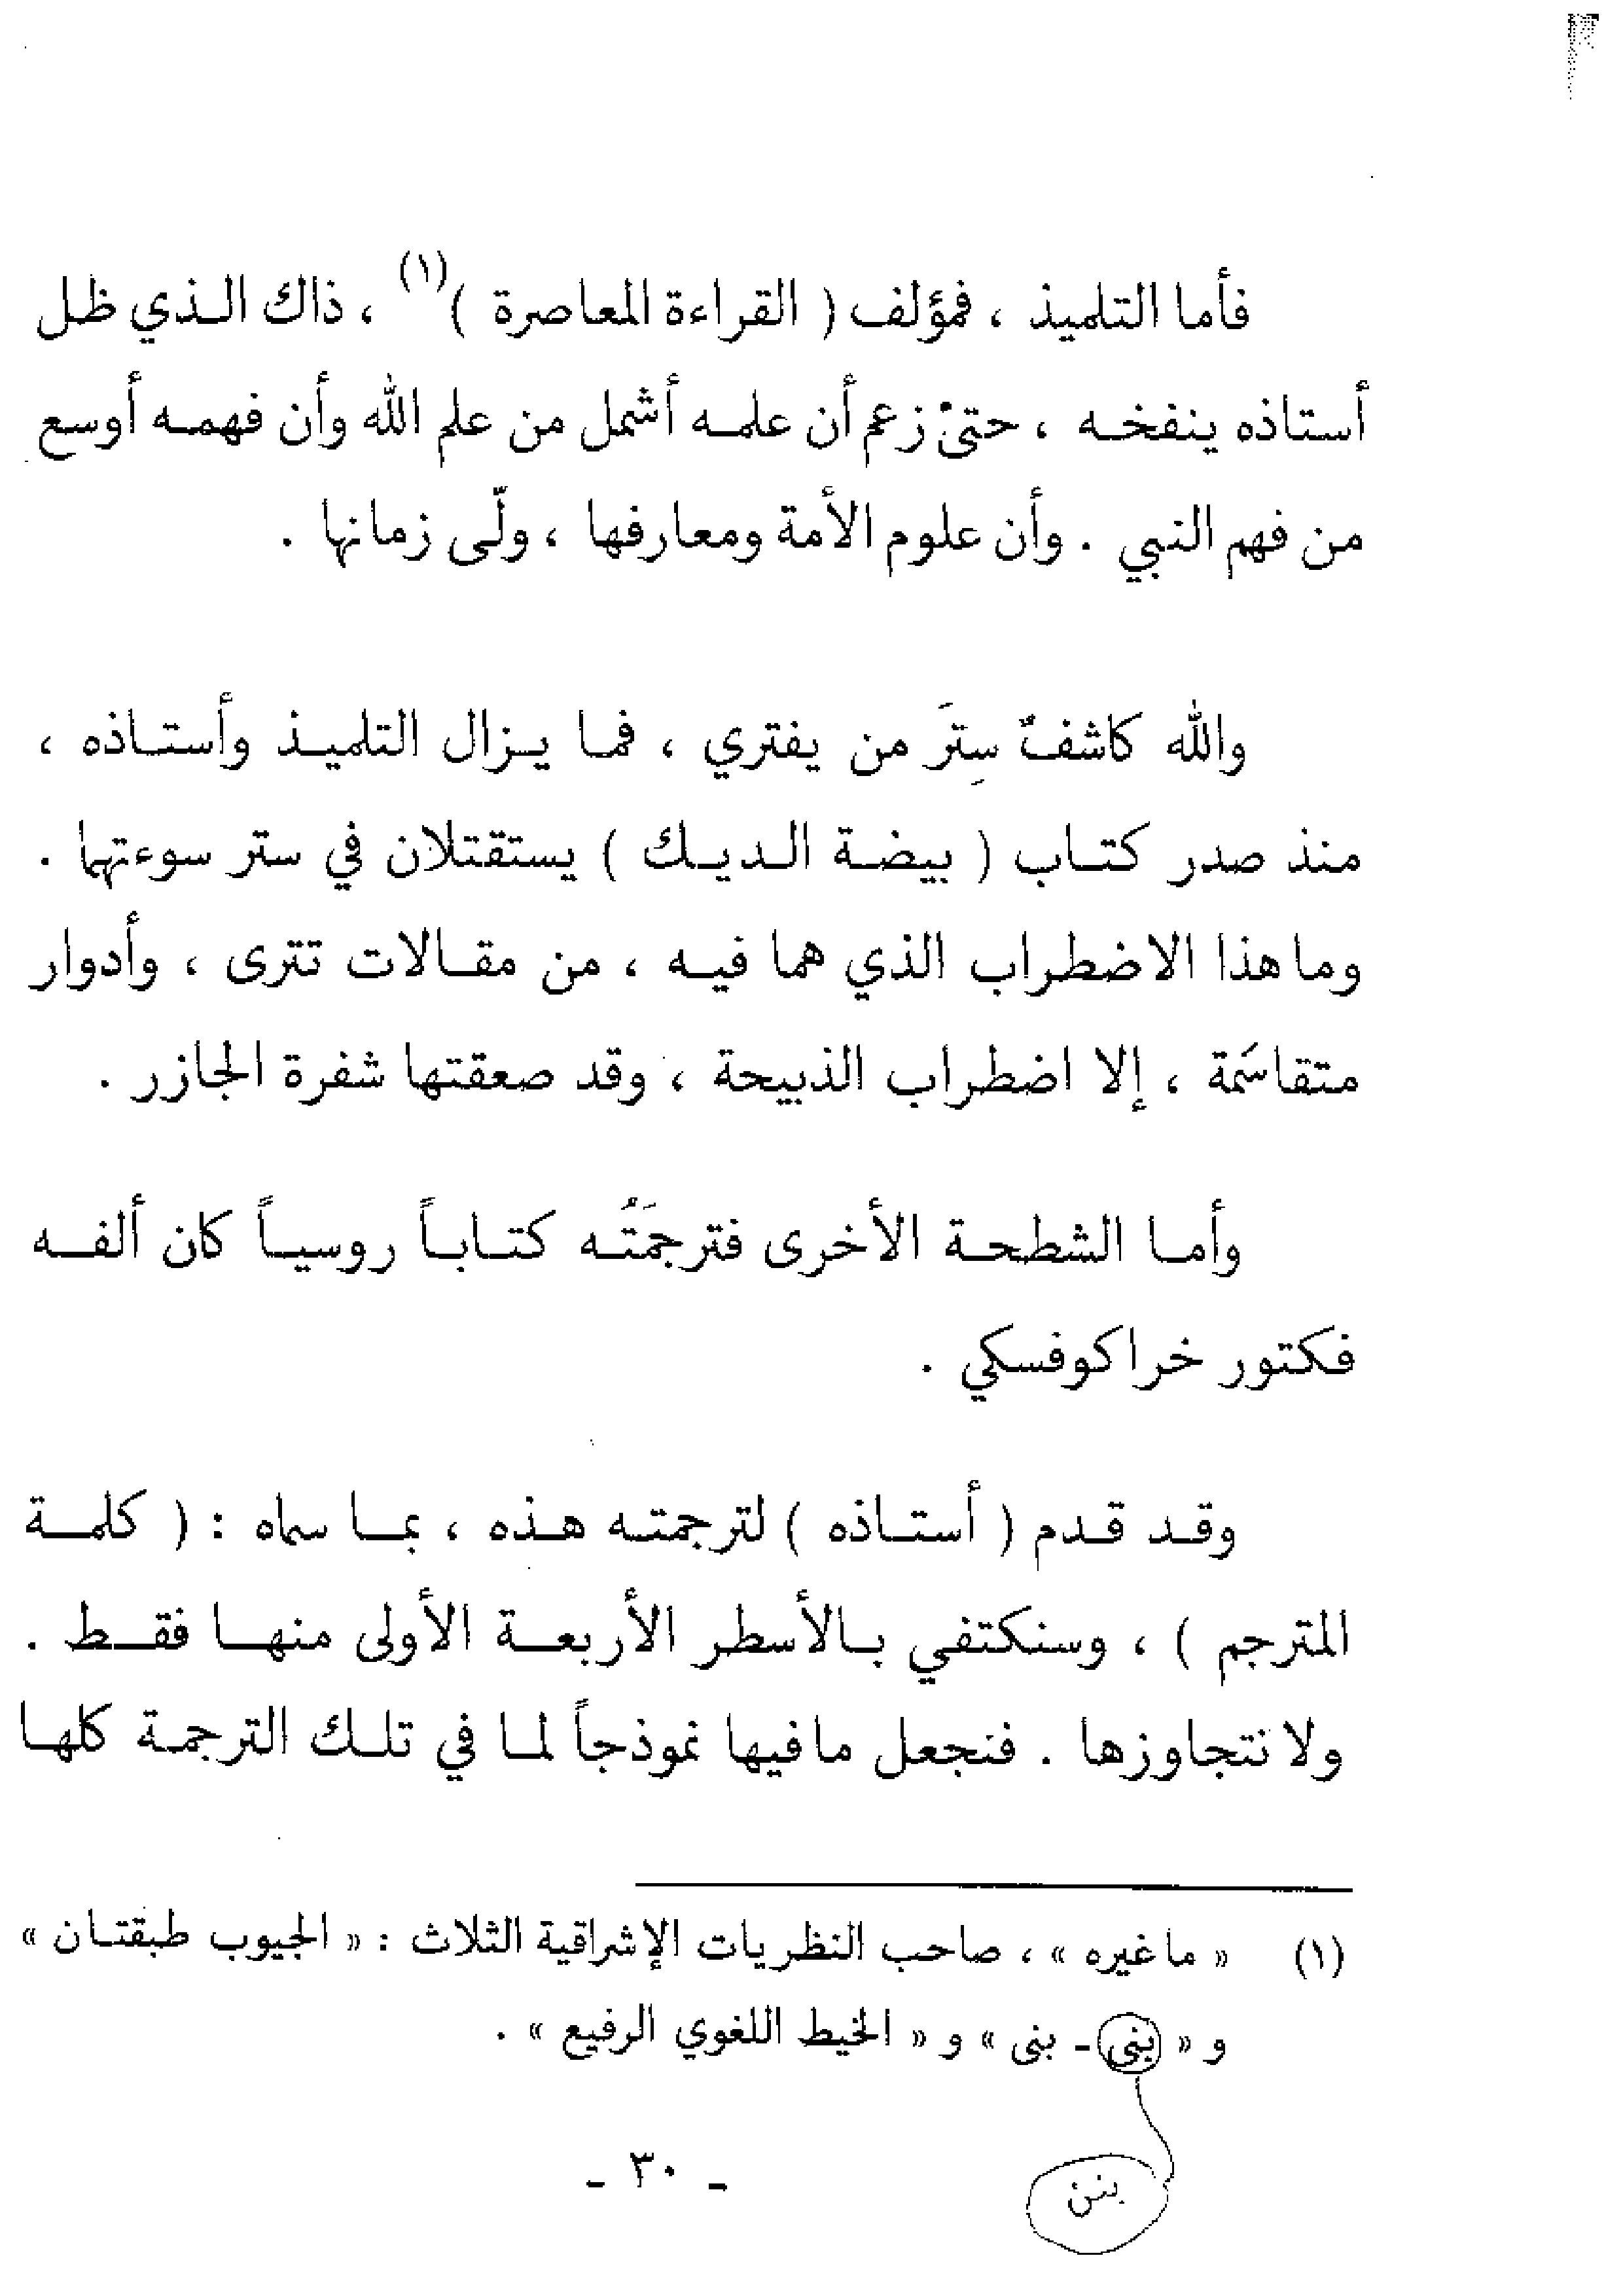 فأما التلميذ ، فمؤلف ( القراءة المعاصرة )(١) ، ذاك الذي ظل
أستاذه ينفخه ، حتىٰ زعم أن علمه أشمل من علم الله وأن فهمه أوسع
من فهم النبي . وأن علوم الأمة ومعارفها ، ولّى زمانها .
والله كاشفٌ سِترَ من يفتري ، فما يزال التلميذ وأستاذه ،
منذ صدر كتاب ( بيضة الديك ) يستقتلان في ستر سوءتهما .
وما هذا الاضطراب الذي هما فيه ، من مقالات تترى ، وأدوار
متقاسَمة ، إلا اضطراب الذبيحة ، وقد صعقتها شفرة الجازر .
وأما الشطحة الأخرى فترجمَتُه كتاباً روسياً كان ألفه
فكتور خراكوفسكي .
وقد قدم ( أستاذه ) لترجمته هذه ، بما سماه : ( كلمة
المترجم ) ، وسنكتفي بالأسطر الأربعة الأولى منها فقط .
ولا نتجاوزها . فنجعل ما فيها نموذجاً لما في تلك الترجمة كلها
(١) « ما غيره » ، صاحب النظريات الإشراقية الثلاث : « الجيوب طبقتان »
و « بنى - بنى » و « الخيط اللغوي الرفيع » .
بنن
- ٣٠ -